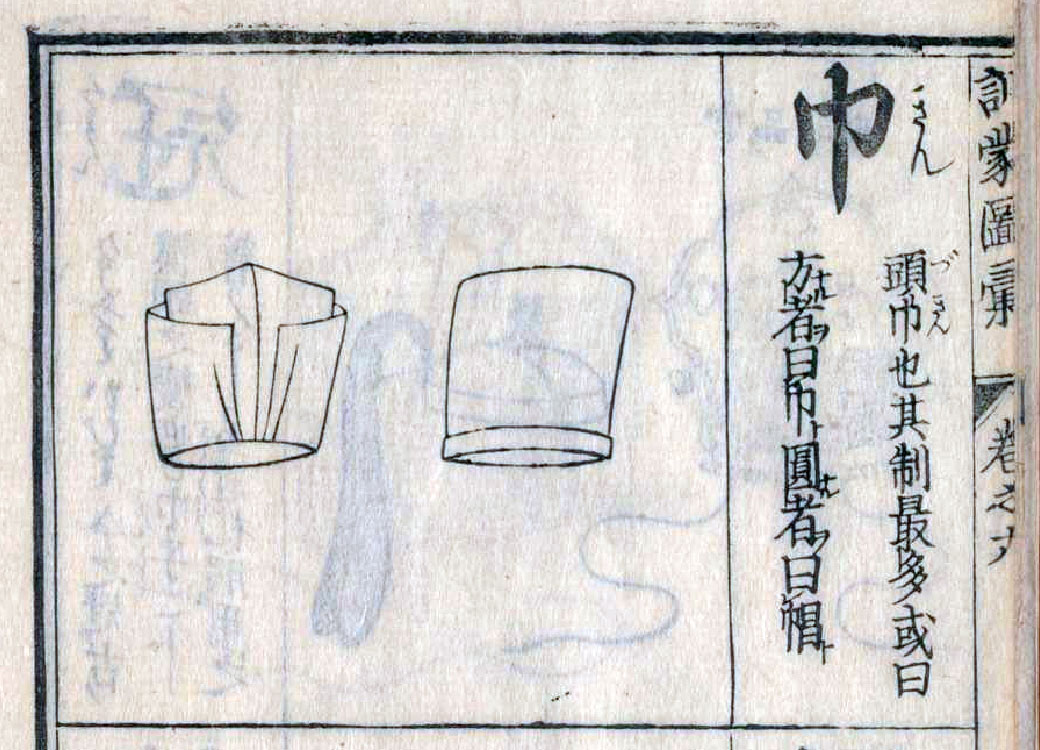 訓蒙圖彙 卷之九
巾
きん
頭巾也其制最多或曰
づきん
方者曰巾圓者曰帽